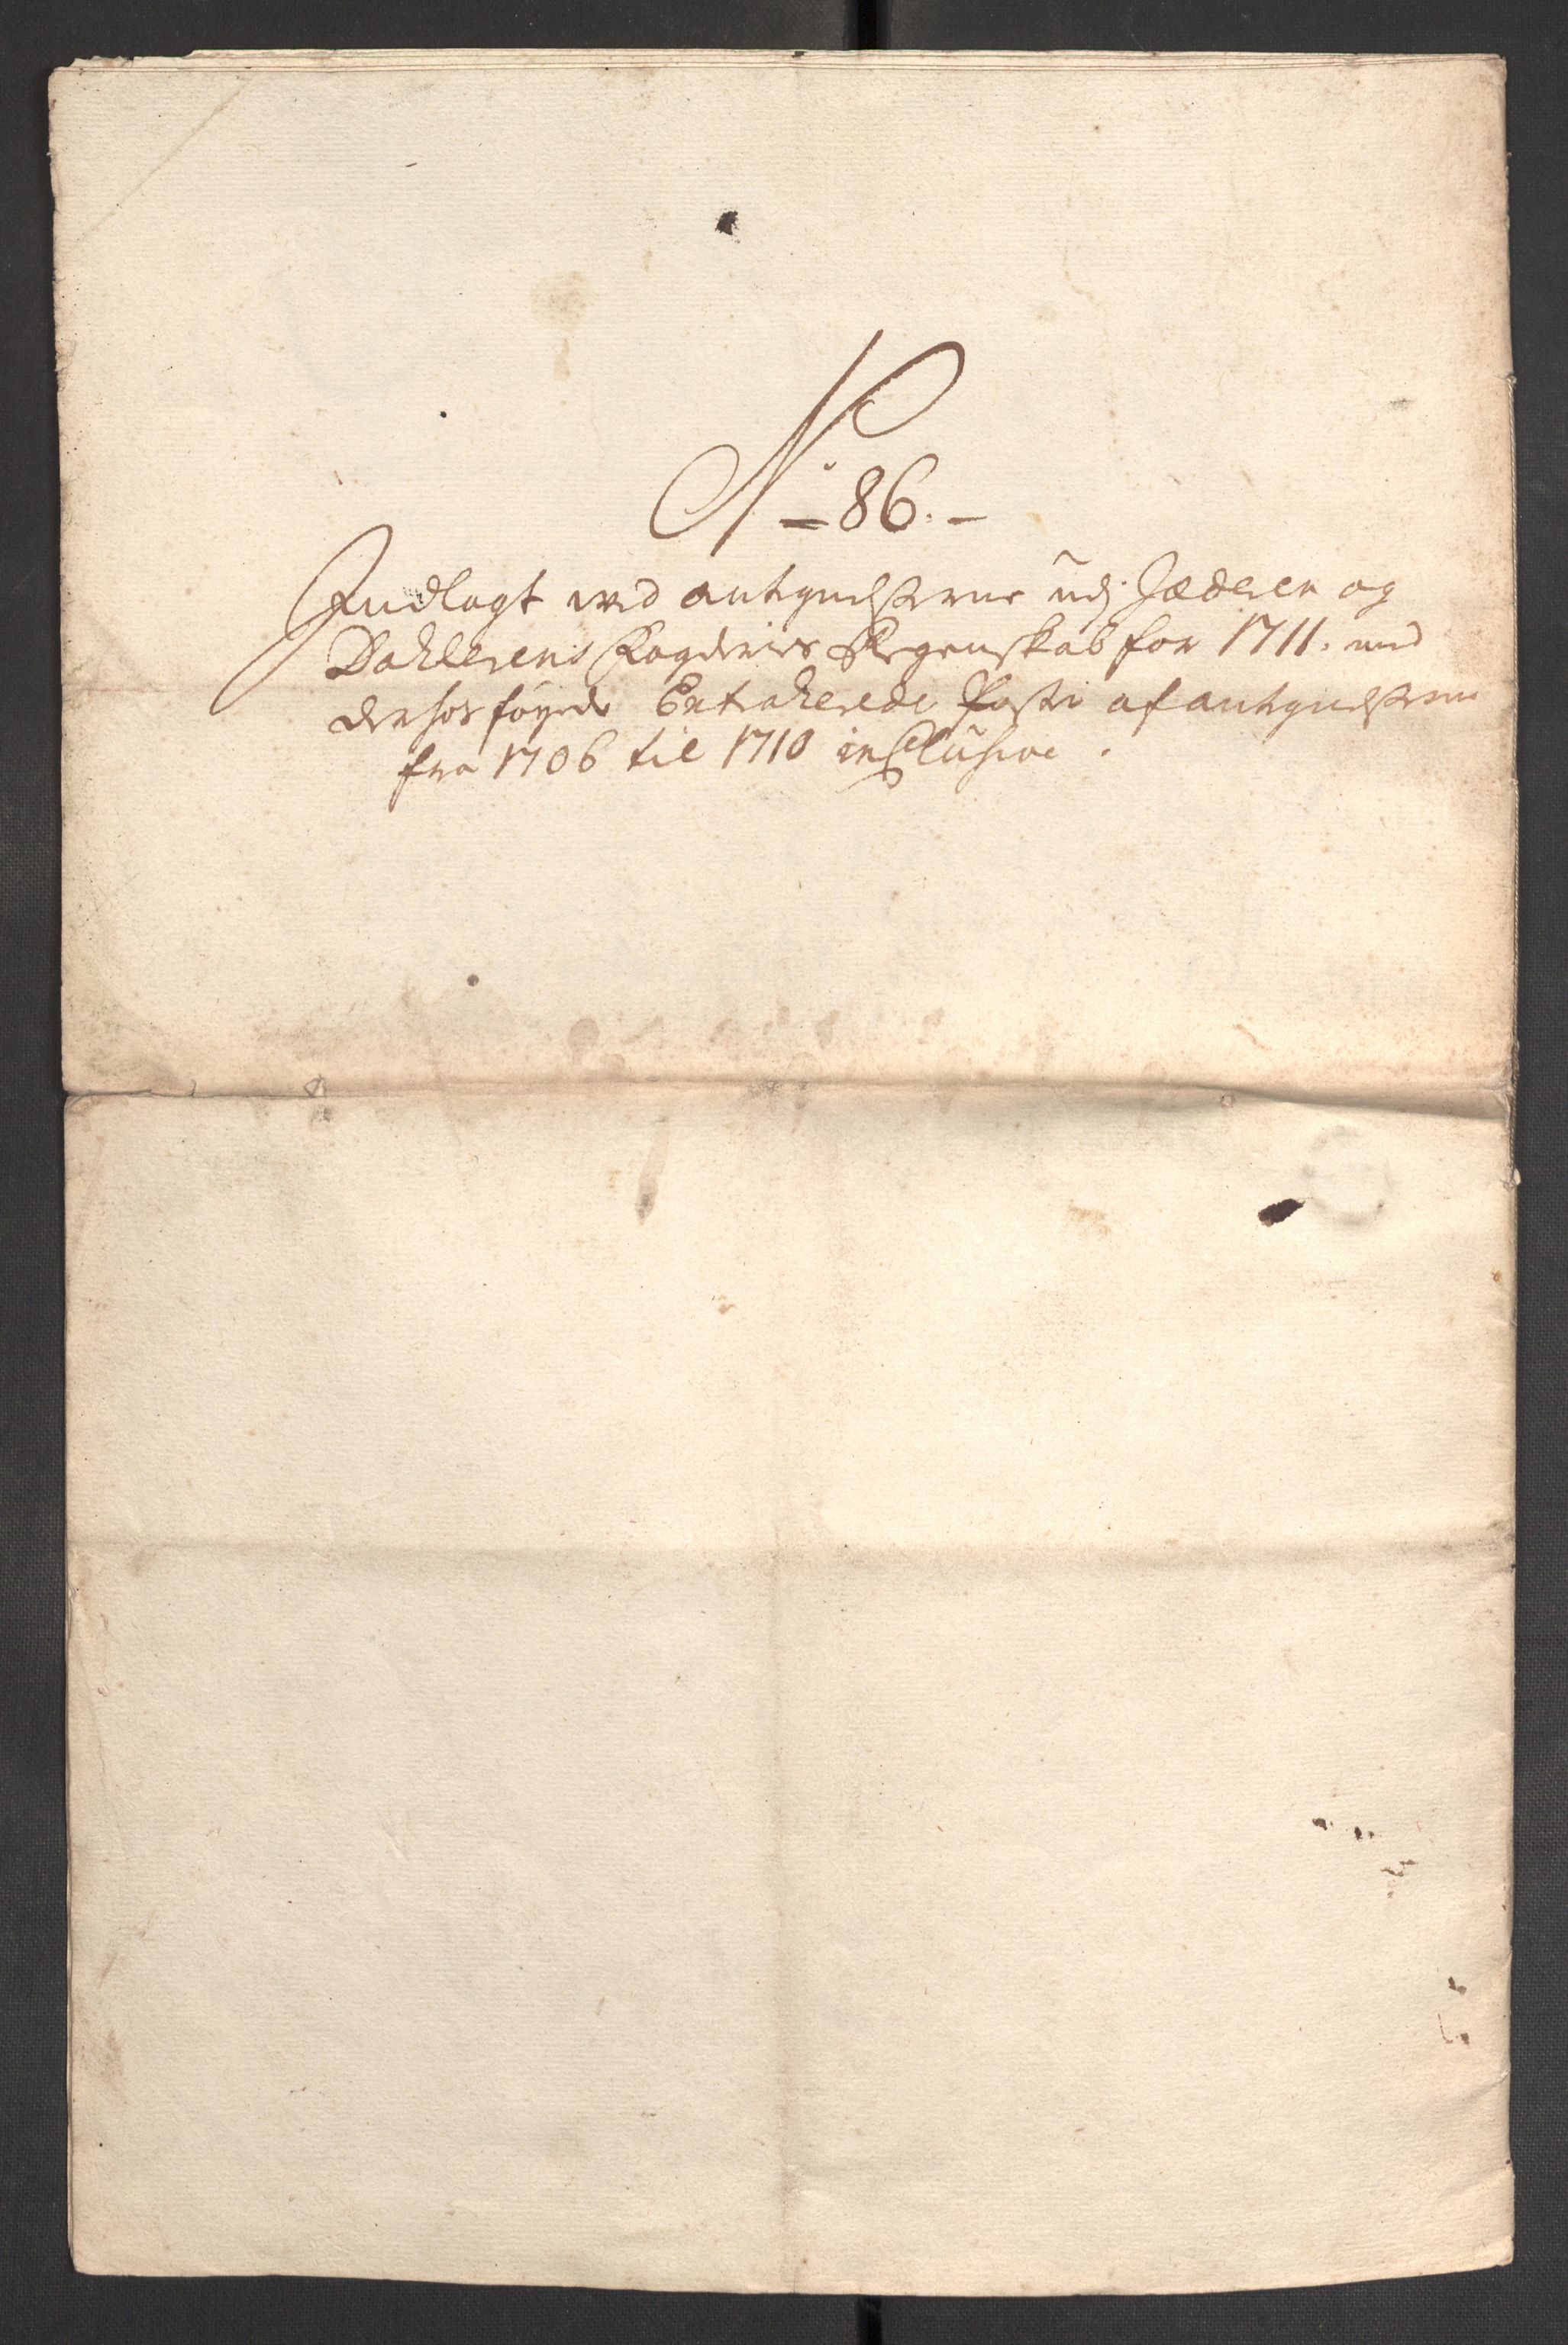 No 86.
Indlagt ved antegnelserne udj Jæderen og
Dahlerens Fogderies Regenskab for 1711. med
derhos føyede Extraherede Poster af antegnelserne
fra 1706 til 1710 inclusive.